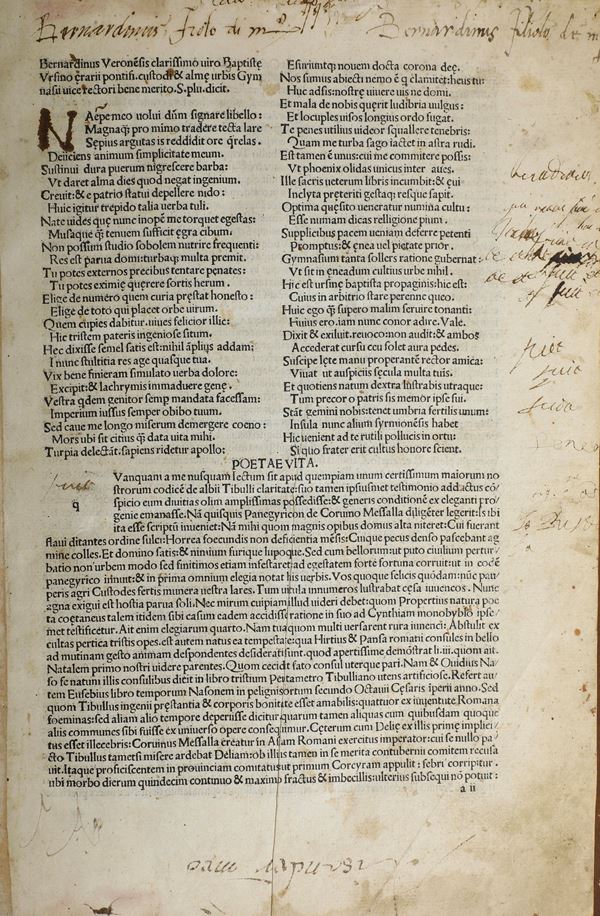 Bernardinus
Bernardinus filiolo de
Bernardinus Veronēsis clarissimo uiro Baptistę
Vrsino ęrarii pontifi. custodi & almę urbis Gym
nasii uice rectori bene merito. S. plu. dicit.
NAępe meo uolui dñm signare libello:
Magnaq; pro mimo tradere tecta lare
Sępius argutas is reddidit ore q̃relas.
Deiiciens animum simplicitate meum.
Sustinui dura puerum nigrescere barba:
Vt daret alma dies quod negat ingenium.
Creuit: & e patrio statui depellere nido:
Huic igitur trepido talia uerba tuli.
Nate uides quę nunc inopē me torquet egestas:
Musaque q̃ tenuem suffícit ęgra cibum.
Non possum studio sobolem nutrire frequenti:
Res est parua domi: turbaq; multa premit.
Tu potes externos precibus tentare penates:
Tu potes eximię quęrere sortis herum.
Elige de numero quem curia pręstat honesto:
Elige de toto qui placet orbe uirum.
Quem cupies dabitur. uiues felicior illic:
Hic tristem pateris ingeniose sitim.
Hec dixisse semel satis est: nihil āplius addam:
I nunc stultitia res age quasque tua.
Vix bene finieram simulato uerba dolore:
Excipit: & lachrymis immaduere genę.
Vestra q̃dem genitor semp mandata facessam:
Imperium iussus semper obibo tuum.
Sed caue me longo miserum demergere coeno:
Mors ubi sit citius q̃ data uita mihi.
Turpia delectāt. sapiens ridetur apollo:
Esuriuntq; nouem docta corona deę.
Nos sumus abiecti nemo ē q clamitet: heus tu:
Huc adsis: nostrę uiuere uis ne domi.
Et mala de nobis quęrit ludibria uulgus:
Et locuples uisos longius ordo fugat.
Te penes utilius uideor squallere tenebris:
Quam me turba sago iactet in astra rudi.
Est tamen ē unus: cui me commitere possis:
Vt phoenix olidas unicus inter aues.
Ille sacris ueterum libris incumbit: & qui
Inclyta pręteriti gestaq; resque sapit.
Optima quęsito ueneratur numina cultu:
Esse numam dicas relligione pium.
Supplicibus pacem ueniam deferre petenti
Promptus: & ęnea uel pietate prior.
Gymnasium tanta sollers ratione gubernat:
Vt sit in eneadum cultius urbe nihil.
Hic est ursinę baptista propaginis: hic est:
Cuius in arbitrio stare perenne queo.
Huic ego q̃ supero malim seruire tonanti:
Huius ero. iam nunc conor adire. Vale.
Dixit & exiluit. reuoco: non audit: & ambos
Accederat cursu ceu solet aura pedes.
Suscipe lęte manu properantē rector amica:
Viuat ut auspiciis sęcula multa tuis.
Et quotiens natum dextra lustrabis utraque:
Tum precor o patris sis memor ipse sui.
Stāt gemini nobis: tenet umbria fertilis unum:
Insula nunc alium syrmionēsis habet
Hic uenient ad te rutili pollucis in ortu:
Si quo frater erit cultus honore scient.
POETAE VITA.
Vanquam a me nusquam lectum sit apud quempiam unum certissimum maiorum no
q
strorum codicē de albii Tibulli claritate: suo tamen ipsiusmet testimonio adductus cō
spicio eum diuitias olim amplissimas possedisse: & generis conditionē ex eleganti pro/
genie emanasse. Nā quisquis Panegyricon de Coruino Messalla diligēter legerit: Is ibi
ita esse scriptū inueniet: Nā mihi quom magnis opibus domus alta niteret: Cui fuerant
flaui ditantes ordine sulci: Horrea foecundis non deficientia mēsis: Cuique pecus denso pascebant ag
mine colles. Et domino satis: & nimium furique lupoque. Sed cum bellorum: ut puto ciuilium pertur/
batio non urbem modo sed finitimos etiam infestaret: ad egestatem forte fortuna corruit: ut in codē
panegyrico innuit: & in prima omnium elegia notat his uerbis. Vos quoque felicis quōdam: nūc pau/
peris agri Custodes fertis munera uestra lares. Tum uitula innumeros lustrabat cęsa iuuencos. Nunc
agna exigui est hostia parua soli. Nec mirum cuipiam illud uideri debet: quom Propertius natura poe
ta coętaneus talem itidem sibi casum eadem accidisse ratione in suo ad Cynthiam monobyblo ipse/
met testificetur. Ait enim elegiarum quarto. Nam tua quom multi uersarent rura iuuenci: Abstulit ex
cultas pertica tristis opes. est autem natus ea tempestate: qua Hirtius & Pansa romani consules in bello
ad mutinam gesto animam despondentes desiderati sunt. quod apertissime demōstrat li. iii. quom ait.
Natalem primo nostri uidere parentes. Quom cecidit fato consul uterque pari. Nam & Ouidius Na/
so se natum illis consulibus dicit in libro tristium Pentametro Tibulliano utens artificiose. Refert au/
tem Eusebius libro temporum Nasonem in pelignis ortum secundo Octauii Cęsaris īperii anno. Sed
quom Tibullus ingenii pręstantia & corporis bonitate esset amabilis: quattuor ex iuuentute Romana
foeminas: sed aliam alio tempore deperisse dicitur quarum tamen aliquas cum quibusdam quoque
aliis communes sibi fuisse ex uniuerso opere consequimur. Cęterum cum Delię ex illis primę implici/
tus esset illecebris: Coruinus Messalla creatur in Asiam Romani exercitus imperator: cui se nullo pa/
cto Tibullus tametsi misere ardebat Deliam: ob illius tamen in se merita contubernii comitem recusa
uit. Itaque proficiscentem in prouinciam comitatus ut primum Corcyram appulit: febri corripitur.
ubi morbo dierum quindecim continuo & maximo fractus & imbecillis: ulterius subsequi nō potuit:
a ii